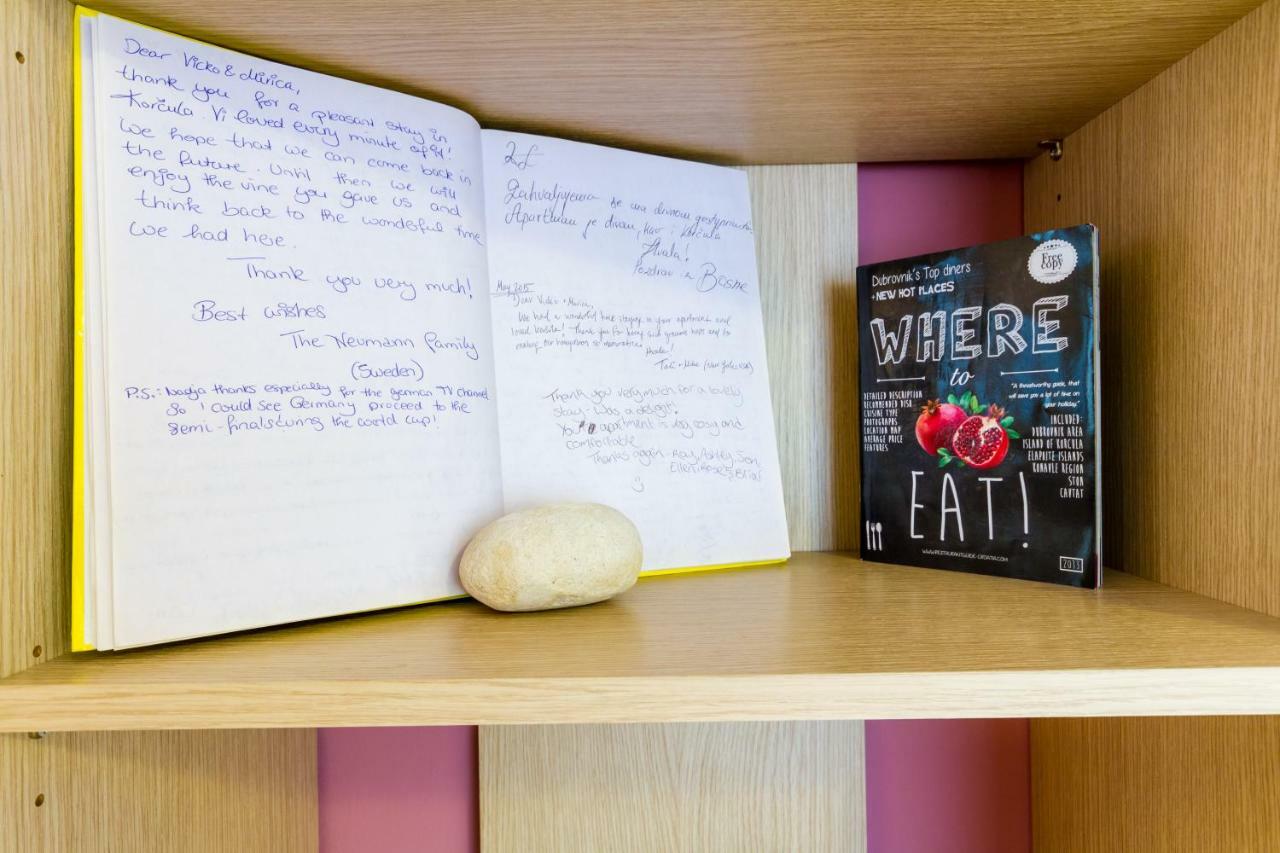 Dear Vicko & Mirica,
thank you for a pleasant stay in
Korčula. Vi loved every minute of it!
We hope that we can come back in
the future. Until then we will
enjoy the vine you gave us and
think back to the wonderful time
we had here.
Thank you very much!
Best wishes
The Neumann family
(Sweden)
P.S.: Nadja thanks especially for the german TV channel
So I could see Germany proceed to the
semi-finals during the world cup!
Zahvaljujemo se na divnom gostoprimstvu.
Apartman je divan, kao i Korčula
Hvala!
Pozdrav iz Bosne
May 2015
Dear Vicko + Marica,
We had a wonderful time staying in your apartment and
loved Korčula! Thank you for being such gracious hosts and for
making our honeymoon so memorable.
Hvala!
+ Mike (New York, USA)
Thank you very much for a lovely
stay. Was a delight!
Your apartment is very cosy and
comfortable.
Thanks again - Ray, Ashley, Son,
Ellen Rose & Brian
:)
Dubrovnik's Top diners
+ NEW HOT PLACES
Free
copy
WHERE
to
EAT!
DETAILED DESCRIPTION
RECOMMENDED DISH
CUISINE TYPE
PHOTOGRAPHS
LOCATION MAP
AVERAGE PRICE
FEATURES
"A trustworthy guide, that
will save you a lot of time on
your holiday."
INCLUDED:
DUBROVNIK AREA
ISLAND OF KORCULA
ELAPHITE ISLANDS
KONAVLE REGION
STON
CAVTAT
WWW.RESTAURANTGUIDE-CROATIA.COM
2013